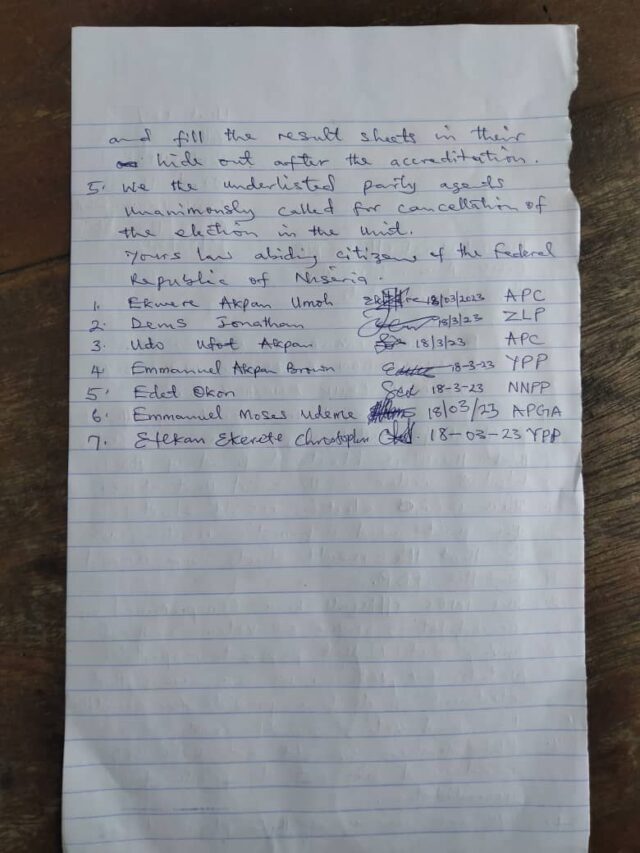 and fill the result sheets in their
hide out after the accreditation.
5. We the underlisted party agents
unanimously called for cancellation of
the election in the unit.
Yours law abiding citizens of the Federal
Republic of Nigeria.
1. Ekwere Akpan Umoh 18/03/2023 APC
2. Denis Jonathan 18/3/23 ZLP
3. Udo Ufot Akpan 18/3/23 APC
4 Emmanuel Akpan Brown 18-3-23 YPP
5. Edet Okon 18-3-23 NNPP
6. Emmanuel Moses Udeme 18/03/23 APGA
7. Etekan Ekerete Christopher 18-03-23 YPP